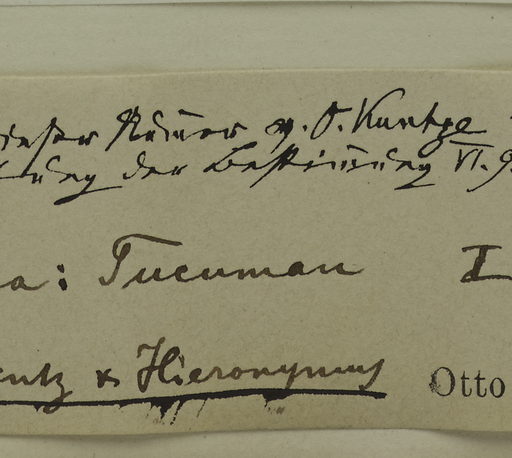 dieser Name v. O. Kuntze
der Bestimmung VI. 9
a: Tucuman I
entz & Hieronymus Otto